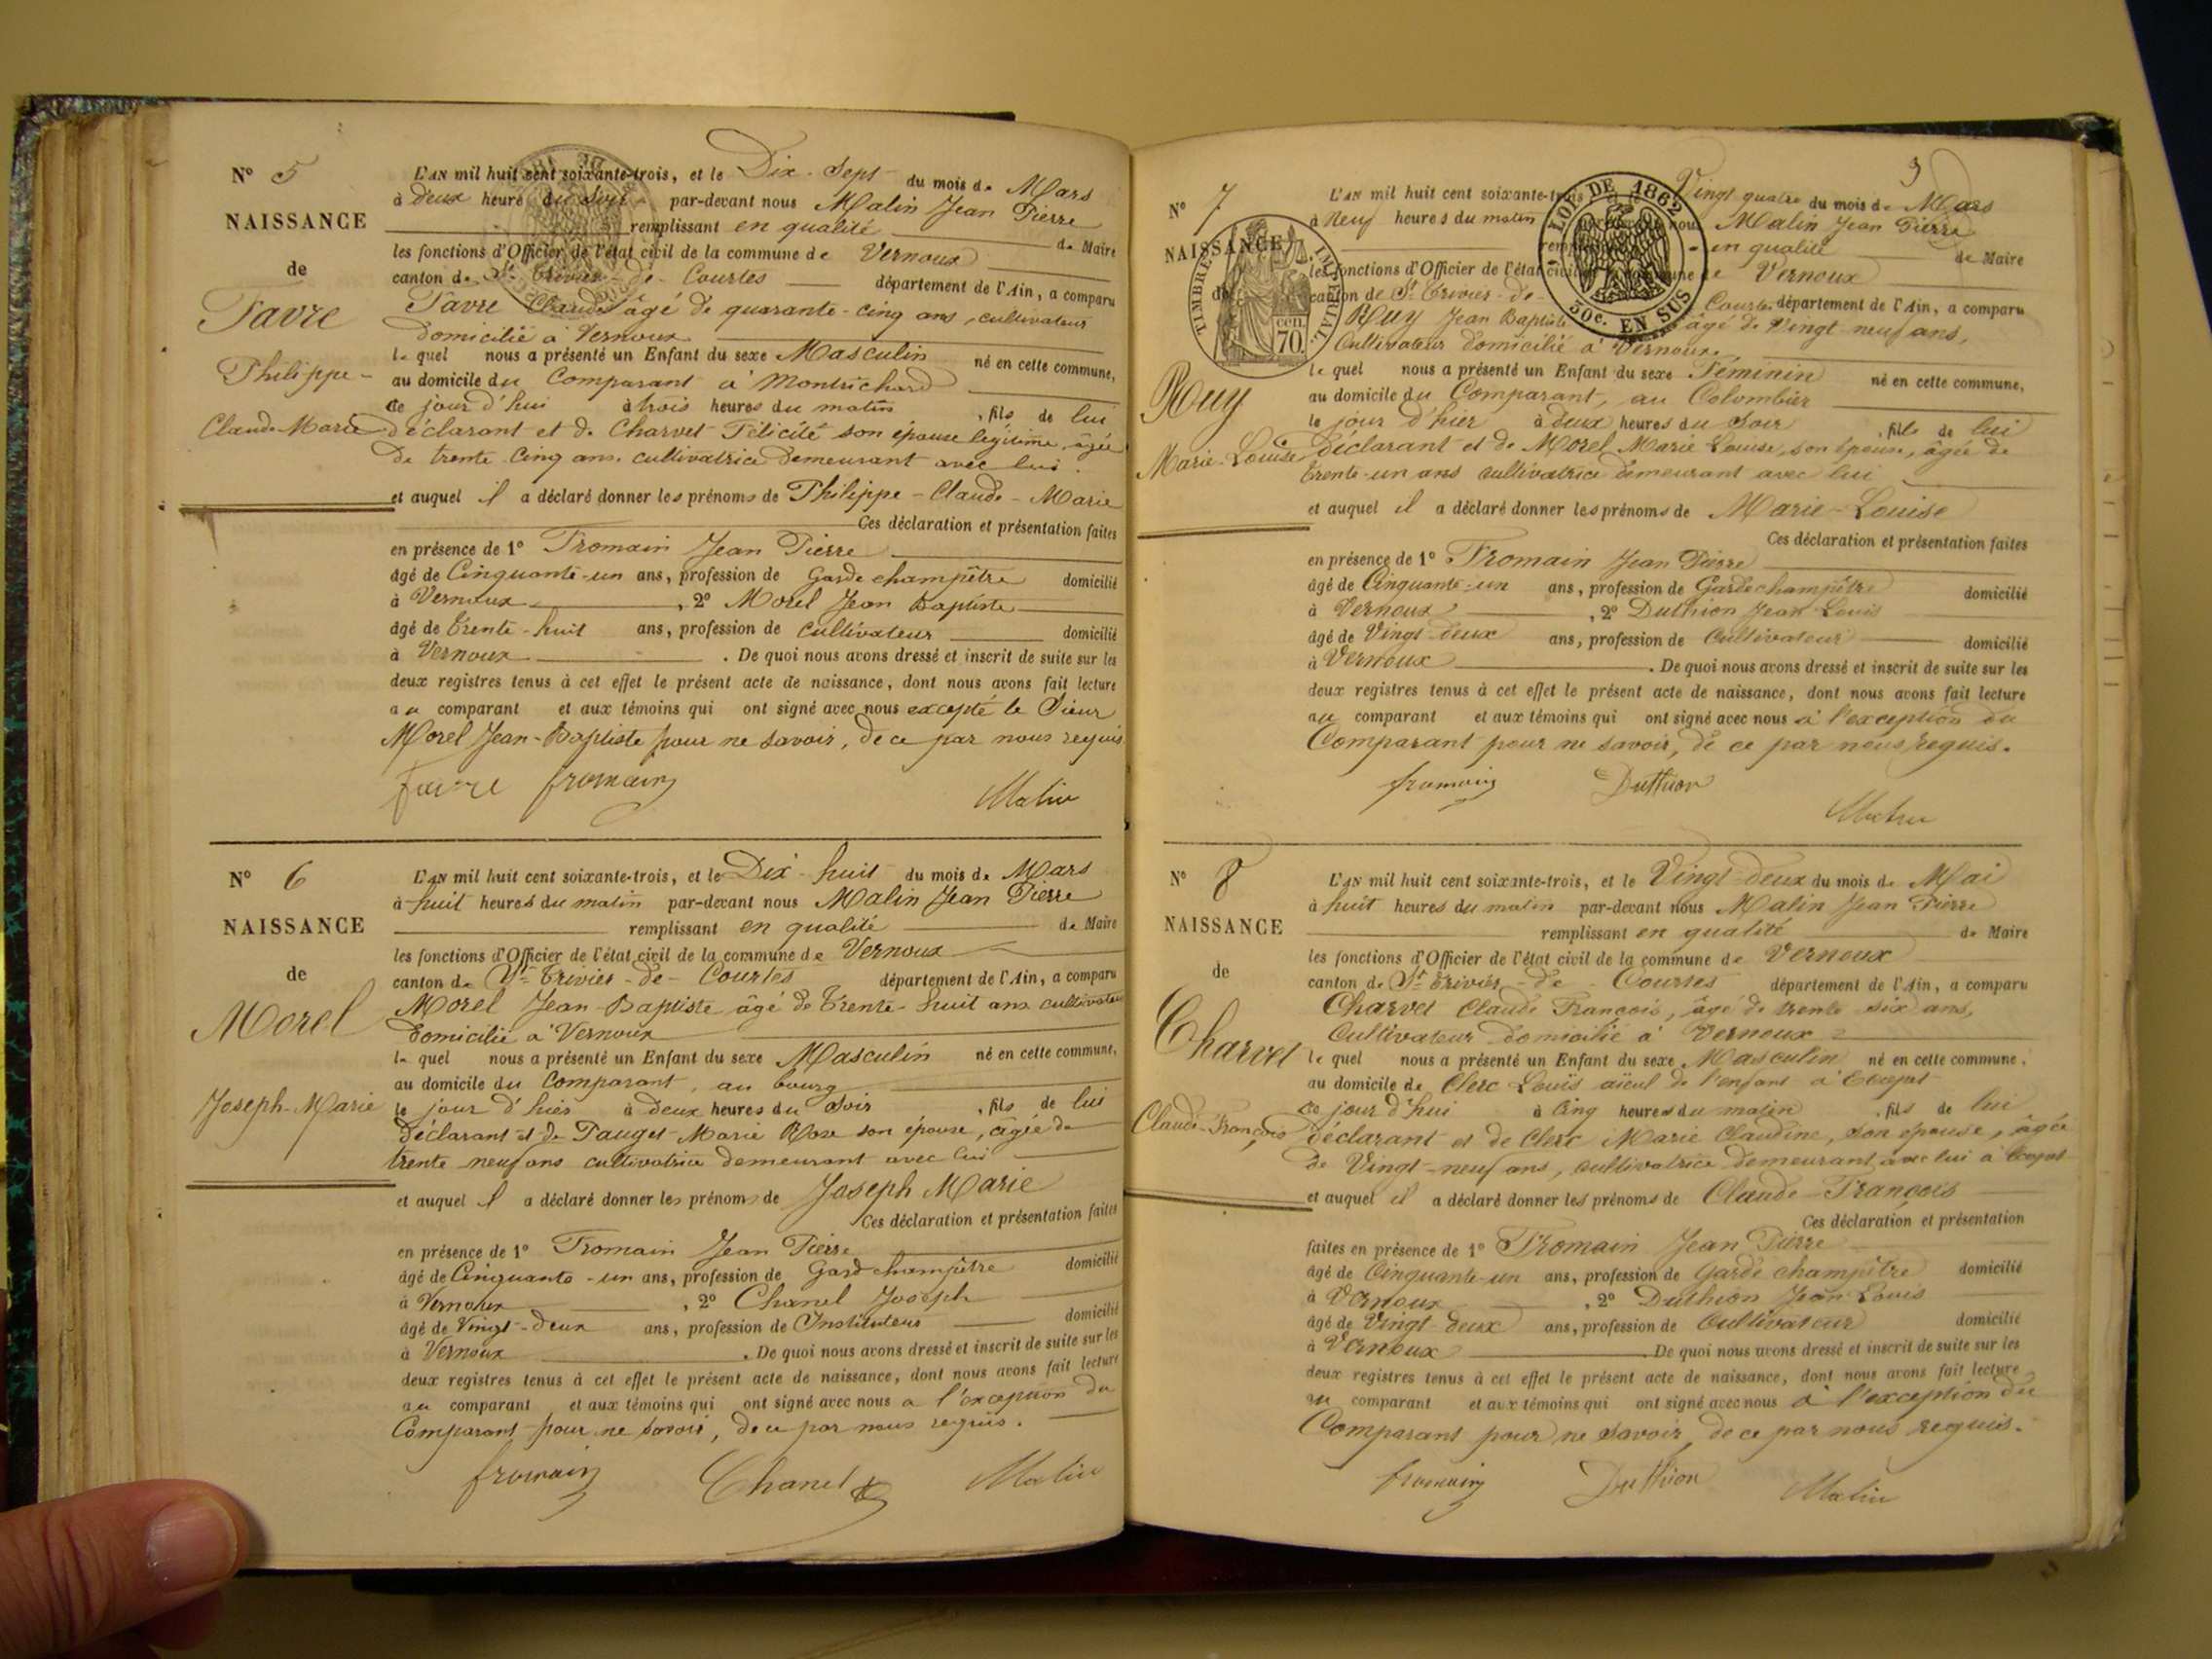 N° 5
NAISSANCE
de
Favre
Philippe-
Claude Marie
L'AN mil huit cent soixante-trois, et le Dix-Sept du mois de Mars
à deux heure du Soir par-devant nous Malin Jean Pierre
remplissant en qualité de Maire
les fonctions d'Officier de l'état civil de la commune de Vernoux
canton de St Trivier-de-Courtes département de l'Ain, a comparu
Favre Claude âgé de quarante-cinq ans, cultivateur
domicilié à Vernoux
le quel nous a présenté un Enfant du sexe Masculin né en cette commune,
au domicile du Comparant à Montrichard
ce jour d'hui à trois heures du matin, fils de lui
déclarant et de Charvet Félicité son épouse légitime, âgée
de trente cinq ans. cultivatrice demeurant avec lui.
et auquel il a déclaré donner les prénoms de Philippe-Claude-Marie
Ces déclaration et présentation faites
en présence de 1° Fromain Jean Pierre
âgé de Cinquante-un ans, profession de Garde champêtre domicilié
à Vernoux, 2° Morel Jean Baptiste
âgé de trente-huit ans, profession de Cultivateur domicilié
à Vernoux. De quoi nous avons dressé et inscrit de suite sur les
deux registres tenus à cet effet le présent acte de naissance, dont nous avons fait lecture
au comparant et aux témoins qui ont signé avec nous excepté le Sieur
Morel Jean-Baptiste pour ne savoir, de ce par nous requis
favre fromain Malin
N° 6
NAISSANCE
de
Morel
Joseph-Marie
L'AN mil huit cent soixante-trois, et le Dix-huit du mois de Mars
à huit heures du matin par-devant nous Malin Jean Pierre
remplissant en qualité de Maire
les fonctions d'Officier de l'état civil de la commune de Vernoux
canton de St Trivier-de-Courtes département de l'Ain, a comparu
Morel Jean-Baptiste âgé de trente-huit ans cultivateur
domicilié à Vernoux
le quel nous a présenté un Enfant du sexe Masculin né en cette commune,
au domicile du Comparant, au bourg
le jour d'hier à deux heures du Soir, fils de lui
déclarant et de Pauget Marie Rose son épouse, âgée de
trente neuf ans cultivatrice demeurant avec lui
et auquel il a déclaré donner les prénoms de Joseph Marie
Ces déclaration et présentation faites
en présence de 1° Fromain Jean Pierre
âgé de Cinquante-un ans, profession de Garde champêtre domicilié
à Vernoux, 2° Chanel Joseph
âgé de Vingt-deux ans, profession de Instituteur domicilié
à Vernoux. De quoi nous avons dressé et inscrit de suite sur les
deux registres tenus à cet effet le présent acte de naissance, dont nous avons fait lecture
au comparant et aux témoins qui ont signé avec nous à l'exception du
Comparant pour ne savoir, de ce par nous requis.
fromain Chanel Malin
3
N° 7
NAISSANCE
de
Ruy
Marie-Louise
TIMBRE IMPERIAL
70 cen.
LOI DE 1862
30c. EN SUS
L'AN mil huit cent soixante-trois Vingt quatre du mois de Mars
à Neuf heures du matin nous Malin Jean Pierre
en qualité de Maire
les fonctions d'Officier de l'état civil commune de Vernoux
canton de St Trivier-de-Courtes département de l'Ain, a comparu
Ruy Jean Baptiste âgé de Vingt-neuf ans,
Cultivateur domicilié à Vernoux,
le quel nous a présenté un Enfant du sexe Féminin né en cette commune,
au domicile du Comparant, au Colombier
le jour d'hier à deux heures du Soir, fille de lui
déclarant et de Morel Marie Louise, son épouse, âgée de
trente-un ans cultivatrice demeurant avec lui
et auquel il a déclaré donner les prénoms de Marie-Louise
Ces déclaration et présentation faites
en présence de 1° Fromain Jean Pierre
âgé de Cinquante-un ans, profession de Garde champêtre domicilié
à Vernoux, 2° Duthion Jean Louis
âgé de Vingt-deux ans, profession de Cultivateur domicilié
à Vernoux. De quoi nous avons dressé et inscrit de suite sur les
deux registres tenus à cet effet le présent acte de naissance, dont nous avons fait lecture
au comparant et aux témoins qui ont signé avec nous à l'exception du
Comparant pour ne savoir, de ce par nous requis.
fromain Duthion Malin
N° 8
NAISSANCE
de
Charvet
Claude-François
L'AN mil huit cent soixante-trois, et le Vingt-deux du mois de Mai
à huit heures du matin par-devant nous Malin Jean Pierre
remplissant en qualité de Maire
les fonctions d'Officier de l'état civil de la commune de Vernoux
canton de St Trivier-de-Courtes département de l'Ain, a comparu
Charvet Claude François, âgé de trente-six ans,
Cultivateur domicilié à Vernoux
le quel nous a présenté un Enfant du sexe Masculin né en cette commune.
au domicile de Clerc Louis aïeul de l'enfant à
ce jour d'hui à Cinq heures du matin, fils de lui
déclarant et de Clerc Marie Claudine, son épouse, âgée
de Vingt-neuf ans, cultivatrice demeurant avec lui à
et auquel il a déclaré donner les prénoms de Claude-François
Ces déclaration et présentation
faites en présence de 1° Fromain Jean Pierre
âgé de Cinquante-un ans, profession de Garde champêtre domicilié
à Vernoux, 2° Duthion Jean Louis
âgé de Vingt-deux ans, profession de Cultivateur domicilié
à Vernoux. De quoi nous avons dressé et inscrit de suite sur les
deux registres tenus à cet effet le présent acte de naissance, dont nous avons fait lecture
au comparant et aux témoins qui ont signé avec nous à l'exception du
Comparant pour ne savoir, de ce par nous requis.
fromain Duthion Malin